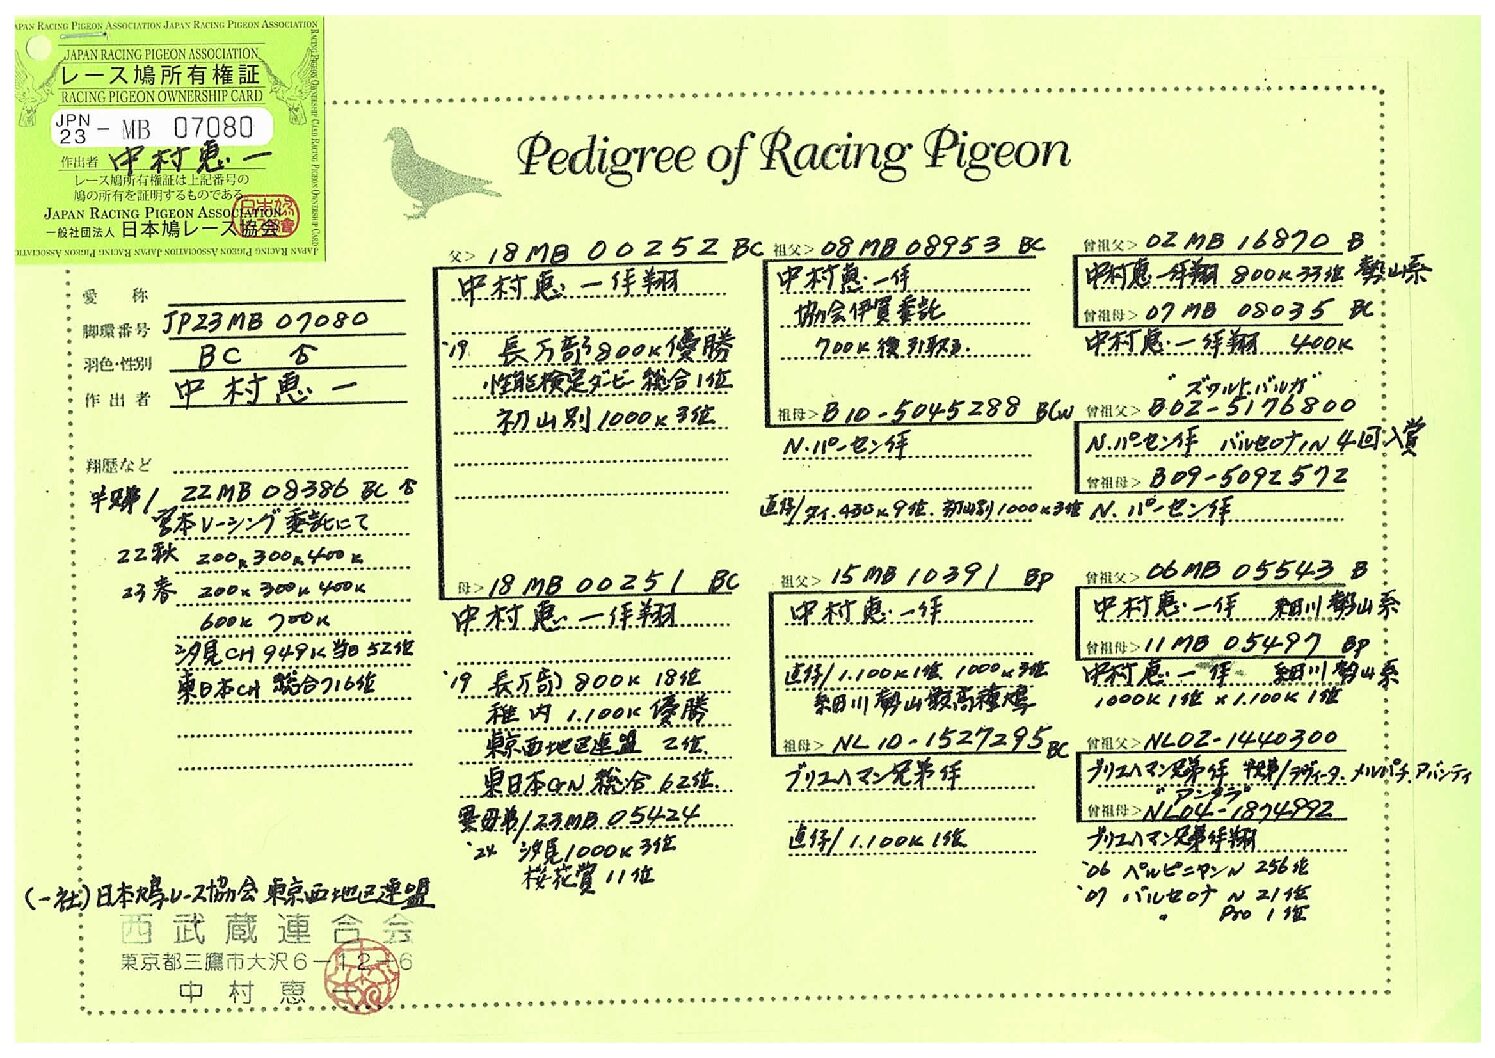 JAPAN RACING PIGEON ASSOCIATION JAPAN RACING PIGEON ASSOCIATION
JAPAN RACING PIGEON ASSOCIATION
レース鳩所有権証
RACING PIGEON OWNERSHIP CARD
JPN 23 - MB 07080
作出者 中村恵一
レース鳩所有権証は上記番号の
鳩の所有を証明するものである
JAPAN RACING PIGEON ASSOCIATION
一般社団法人 日本鳩レース協会
Pedigree of Racing Pigeon
愛称
脚環番号 JP23MB 07080
羽色・性別 BC 合
作出者 中村恵一
翔歴など
半兄弟/ 22MB 08386 BC 合
宮本レーシング委託にて
22秋 200K 300K 400K
23春 200K 300K 400K
600K 700K
汐見CH 949K 当日 52位
東日本CH 総合716位
父> 18MB 00252 BC
中村恵一作翔
'19 長万部800K優勝
性能検定ダービー 総合1位
初山別1000K3位
母> 18MB 00251 BC
中村恵一作翔
'19 長万部800K 18位
稚内 1.100K優勝
東京西地区連盟 2位
東日本GN 総合62位
異母弟/23MB 05424
'24 汐見1000K3位
桜花賞11位
祖父> 08MB08953 BC
中村恵一作
協会伊賀委託
700K後引取る
祖母> B10-5045288 BCW
N.パーセン作
直仔/ .430K9位 初山別1000K3位
祖父> 15MB10391 BP
中村恵一作
直仔/1.100K1位 1000K3位
細川勢山最高種鳩
祖母> NL10-1527295 BC
ブリエハマン兄弟作
直仔/1.100K1位
曾祖父> 02MB16870 B
中村恵一作翔 800K33位 勢山系
曾祖母> 07MB 08035 BC
中村恵一作翔 400K
"ズワルトバルガ"
曾祖父> B02-5176800
N.パーセン作 バルセロナIN 4回入賞
曾祖母> B09-5092572
N.パーセン作
曾祖父> 06MB 05543 B
中村恵一作 細川勢山系
曾祖母> 11MB 05497 BP
中村恵一作 細川勢山系
1000K1位 x 1.100K1位
曾祖父> NL02-1440300
ブリエハマン兄弟作 半兄弟/ラヴィータ.メルパチ.アバンティ
曾祖母> NL04-1874992
ブリエハマン兄弟作翔
'06 ペルピニャンN 256位
'07 バルセロナ N 21位
〃 Pro 1位
(一社)日本鳩レース協会 東京西地区連盟
西武蔵連合会
東京都三鷹市大沢6-12-6
中村恵一